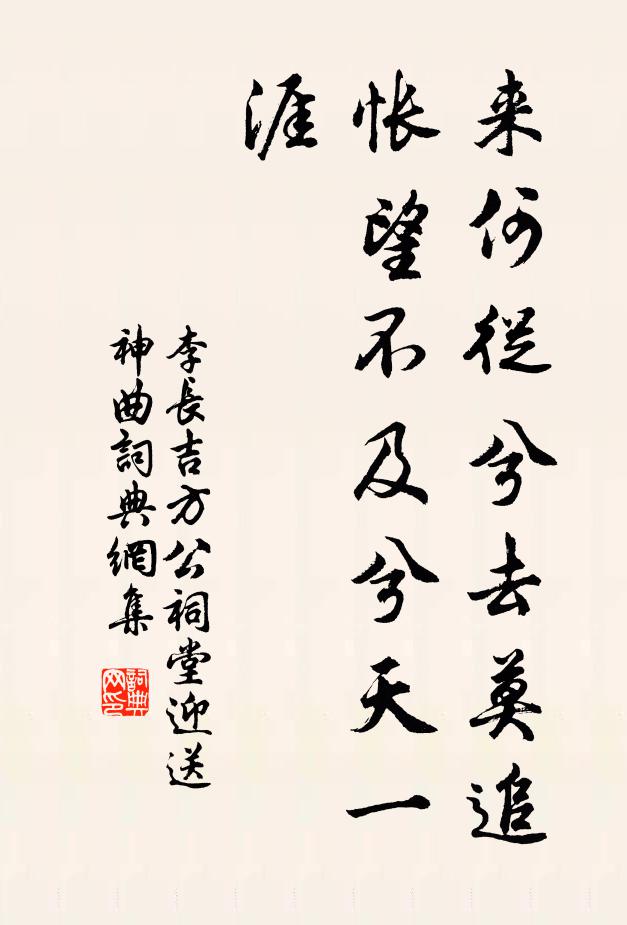 来何從兮去莫追
悵望不及兮天一
涯
李長吉方公祠堂迎送
神曲詞典網集
詞典网印